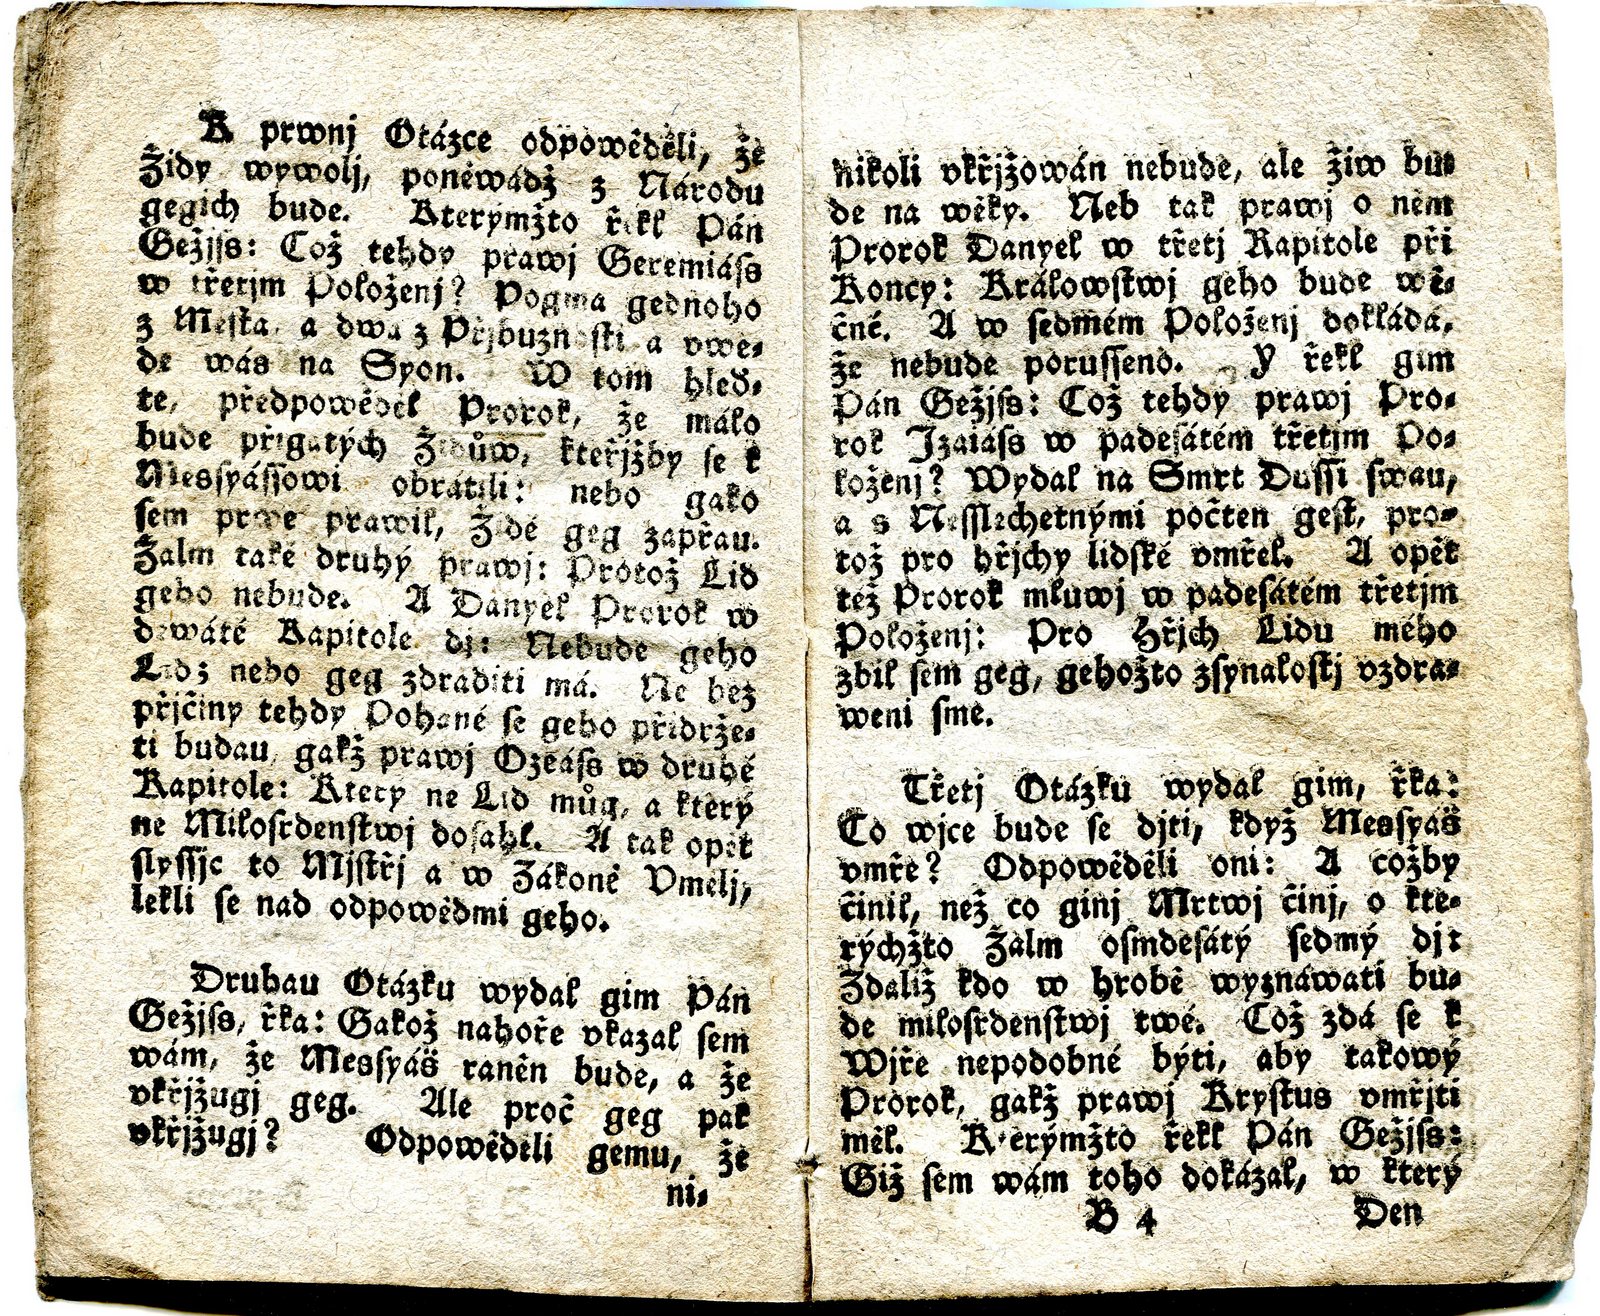 K prwnj Otázce odpowěděli, že
Židy wywolj, poněwádž z Národu
gegich bude. Kterýmžto řekl Pán
Gežjſs: Což tehdy prawj Geremiáſs
w třetjm Położenj? Pogma gednoho
z Města, a dwa z Přjbuznosti a vwe-
de wás na Syon. W tom hleď-
te, předpowěděł Prorok, že máło
bude přigatých Židůw, kteřjžby ſe k
Mesſyáſſowi obrátili: nebo gako
ſem prwe prawił, Židé geg zapřau.
Žalm také druhý prawj: Protož Lid
geho nebude. A Danyeł Prorok w
dewáté Kapitole dj: Nebude geho
Lid; nebo geg zdraditi má. Ne bez
přjčiny tehdy Pohané ſe geho přidrže-
ti budau, gakž prawj Ozeáſs w druhé
Kapitole: Který ne Lid můg, a který
ne Miłoſrdenſtwj doſáhł. A tak opět
ſlyſſjc to Mjſtřj a w Zákoně Vmělj,
lekli ſe nad odpowědmi geho.
Druhau Otázku wydał gim Pán
Gežjſs, řka: Gakož nahoře vkazał ſem
wám, že Mesſyáš raněn bude, a že
vkřjžugj geg. Ale proč geg pak
vkřjžugj? Odpowěděli gemu, že
ni-
nikoli vkřjžowán nebude, ale žiw bu-
de na wěky. Neb tak prawj o něm
Prorok Danyeł w třetj Kapitole při
Koncy: Králowſtwj geho bude wě-
čné. A w ſedmém Położenj dokłádá,
že nebude poruſſeno. Y řekł gim
Pán Gežjſs: Což tehdy prawj Pro-
rok Jzaiáſs w padeſátém třetjm Po-
łoženj? Wydał na Smrt Duſſi ſwau,
a s Neſſlechetnými počten geſt, pro-
tož pro hřjchy lidſké vmřeł. A opět
též Prorok młuwj w padeſátém třetjm
Położenj: Pro Hřjch Lidu mého
zbił ſem geg, gehožto zſynałoſtj vzdra-
weni ſme.
Třetj Otázku wydał gim, řka:
Co wjce bude ſe djti, když Mesſyáš
vmře? Odpowěděli oni: A cožby
činił, než co ginj Mrtwj činj, o kte-
rýchžto Žalm oſmdeſátý ſedmý dj:
Zdaliž kdo w hrobě wyznáwati bu-
de miłoſrdenſtwj twé. Což zdá ſe k
Wjře nepodobné býti, aby takowý
Prorok, gakž prawj Kryſtus vmřjti
měł. Kterýmžto řekł Pán Gežjſs:
Giž ſem wám toho dokázał, w který
B 4 Den